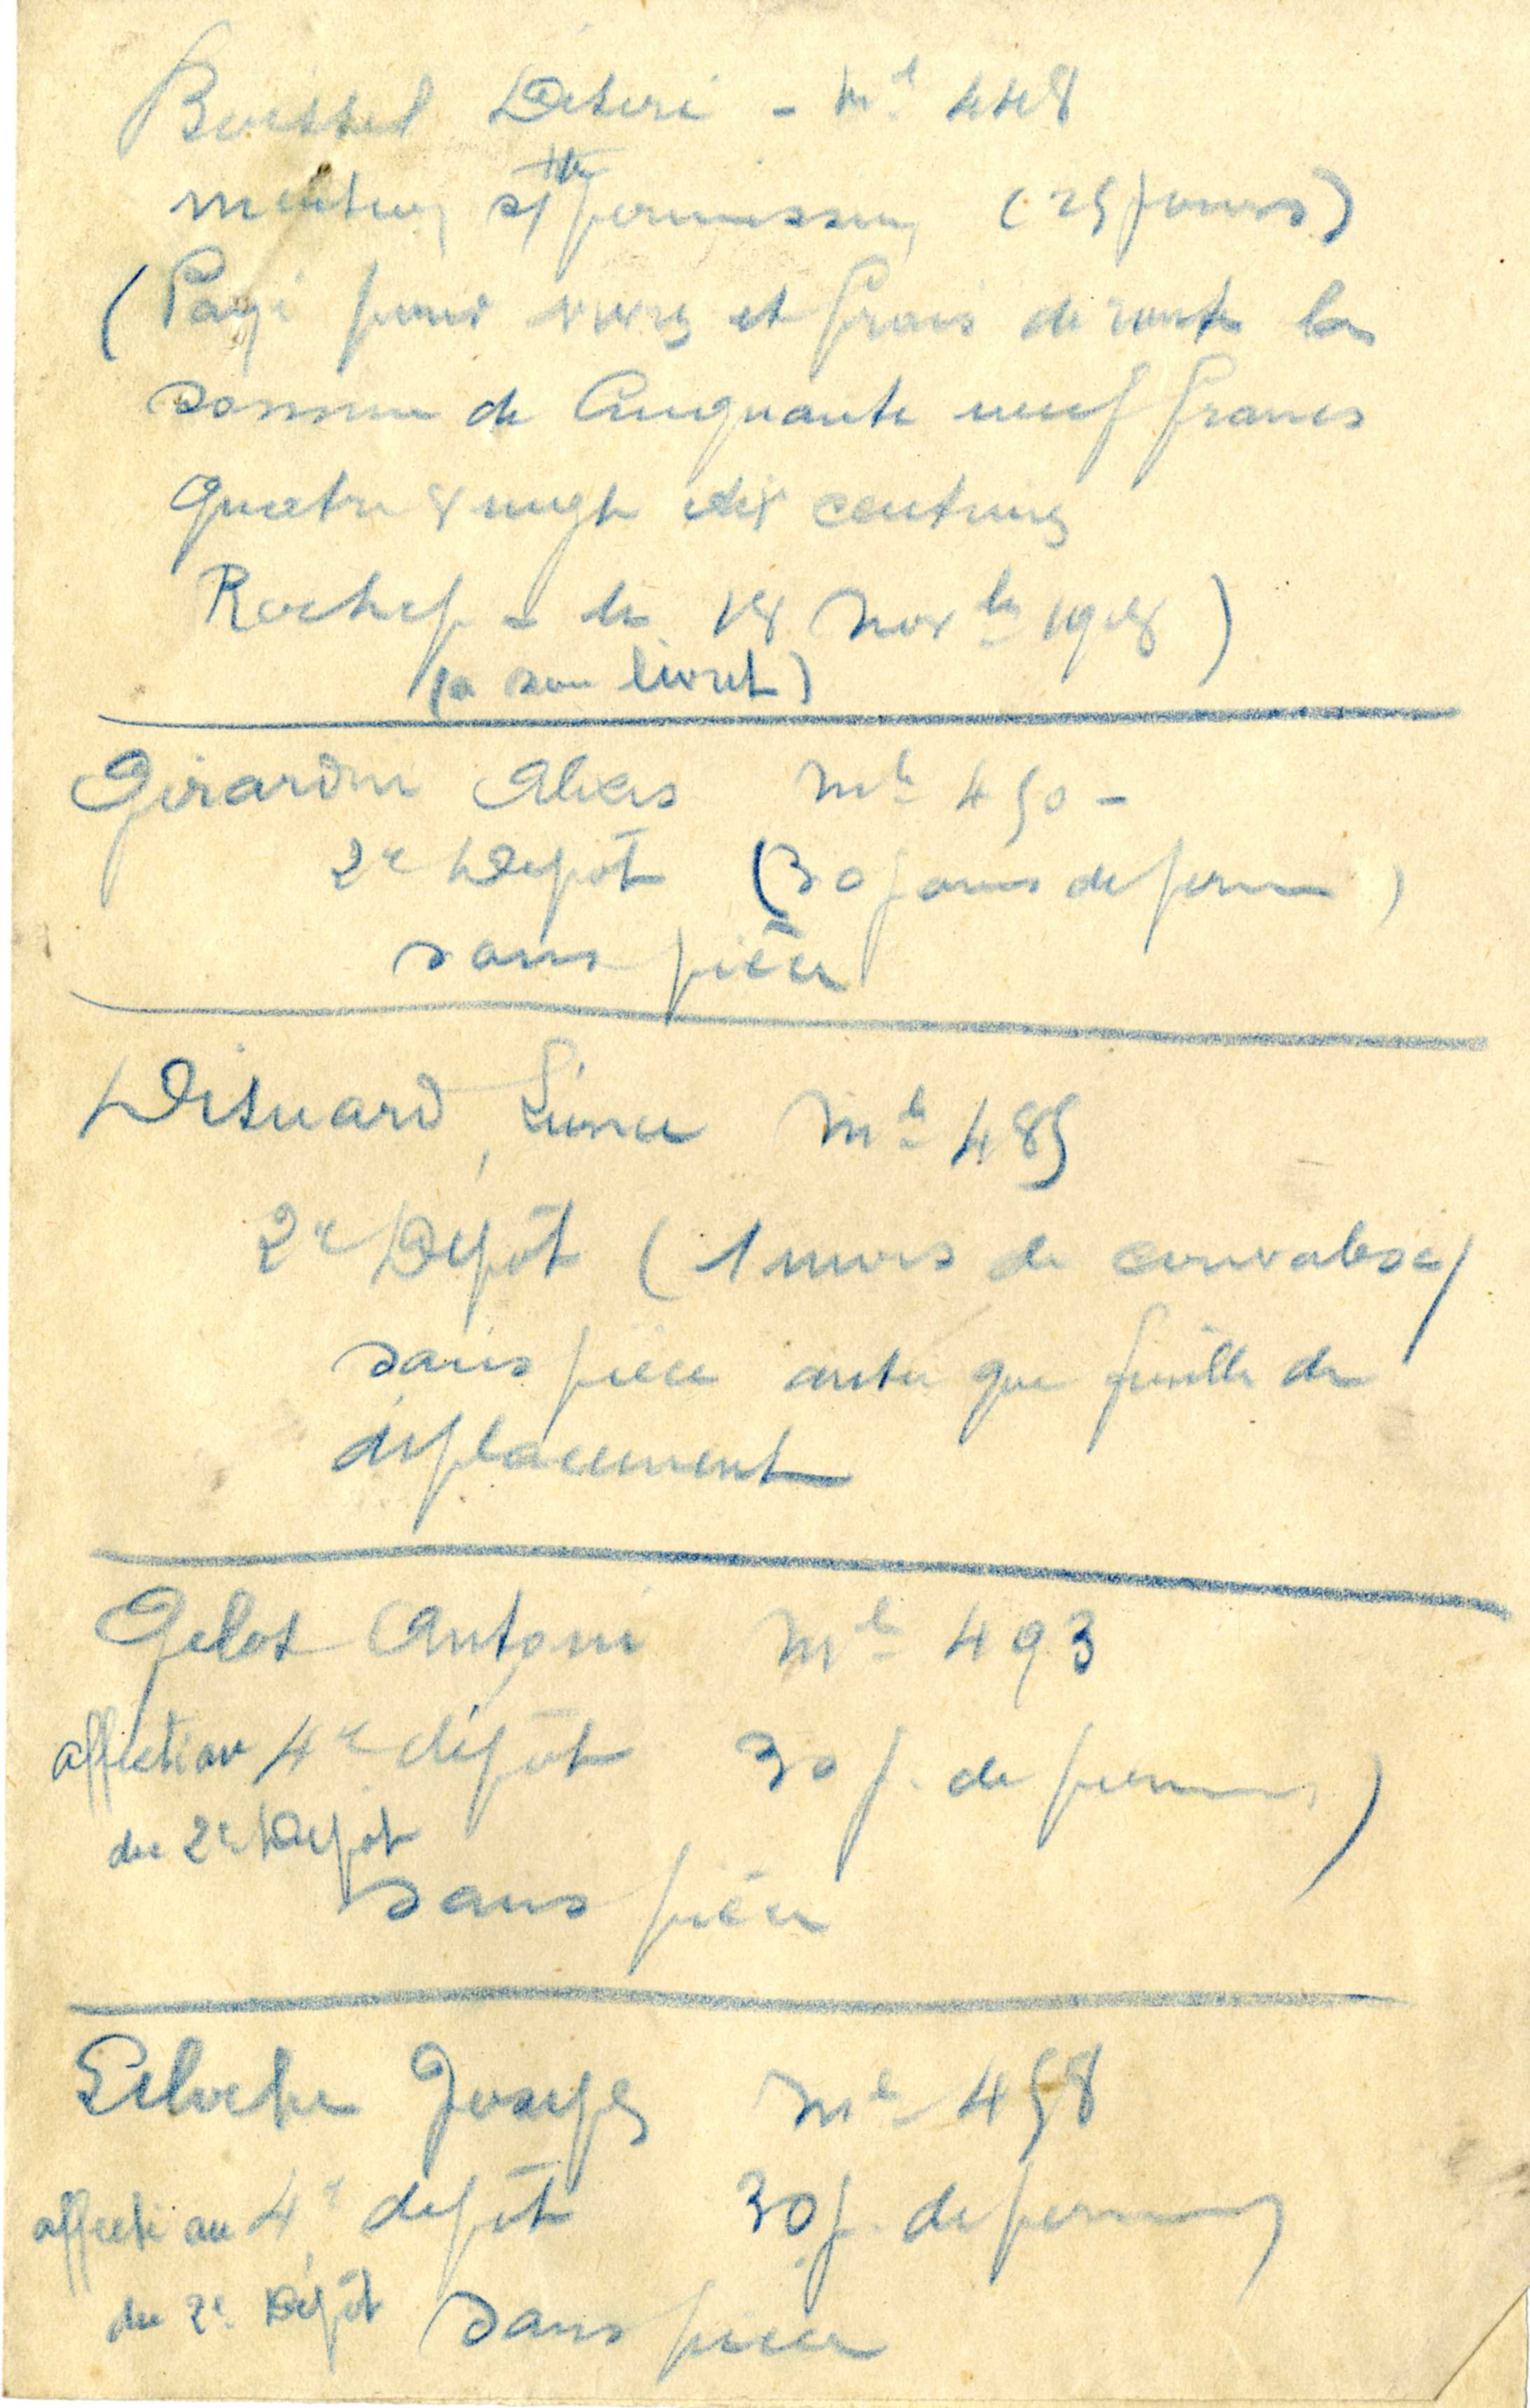 Boissel Désiré - Mle 448
(25 jours)
(Payé pour vivres et frais de route la
somme de Cinquante neuf francs
quatre vingt dix centimes
Rochef - le 18 Novbre 1918)
(a son livret)
Girardin Alexis Mle 450 -
2e Dépôt (30 jours de perm)
sans pièce
Disuard Mle 485
2e Dépôt (1 mois de convalesce)
sans pièce autre que feuille de
déplacement
Gelot Antoine Mle 493
affecté au 4e dépôt 30 j. de perm)
du 2e Dépôt
sans pièce
Joseph Mle 458
affecté au 4e dépôt 30 j. de perm)
du 2e Dépôt sans pièce